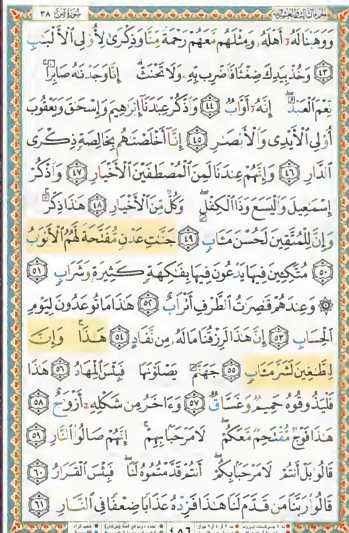 سُورَةُ صٓ ٣٨
وَوَهَبْنَا لَهُۥٓ أَهْلَهُۥ وَمِثْلَهُم مَّعَهُمْ رَحْمَةً مِّنَّا وَذِكْرَىٰ لِأُو۟لِى ٱلْأَلْبَٰبِ
٤٣ وَخُذْ بِيَدِكَ ضِغْثًا فَٱضْرِب بِّهِۦ وَلَا تَحْنَثْ ۗ إِنَّا وَجَدْنَٰهُ صَابِرًا ۚ
نِّعْمَ ٱلْعَبْدُ ۖ إِنَّهُۥٓ أَوَّابٌ ٤٤ وَٱذْكُرْ عِبَٰدَنَآ إِبْرَٰهِيمَ وَإِسْحَٰقَ وَيَعْقُوبَ
أُو۟لِى ٱلْأَيْدِى وَٱلْأَبْصَٰرِ ٤٥ إِنَّآ أَخْلَصْنَٰهُم بِخَالِصَةٍ ذِكْرَى
ٱلدَّارِ ٤٦ وَإِنَّهُمْ عِندَنَا لَمِنَ ٱلْمُصْطَفَيْنَ ٱلْأَخْيَارِ ٤٧ وَٱذْكُرْ
إِسْمَٰعِيلَ وَٱلْيَسَعَ وَذَا ٱلْكِفْلِ ۖ وَكُلٌّ مِّنَ ٱلْأَخْيَارِ ٤٨ هَٰذَا ذِكْرٌ ۚ
وَإِنَّ لِلْمُتَّقِينَ لَحُسْنَ مَـَٔابٍ ٤٩ جَنَّٰتِ عَدْنٍ مُّفَتَّحَةً لَّهُمُ ٱلْأَبْوَٰبُ
٥٠ مُتَّكِـِٔينَ فِيهَا يَدْعُونَ فِيهَا بِفَٰكِهَةٍ كَثِيرَةٍ وَشَرَابٍ ٥١
۞ وَعِندَهُمْ قَٰصِرَٰتُ ٱلطَّرْفِ أَتْرَابٌ ٥٢ هَٰذَا مَا تُوعَدُونَ لِيَوْمِ
ٱلْحِسَابِ ٥٣ إِنَّ هَٰذَا لَرِزْقُنَا مَا لَهُۥ مِن نَّفَادٍ ٥٤ هَٰذَا ۚ وَإِنَّ
لِلطَّٰغِينَ لَشَرَّ مَـَٔابٍ ٥٥ جَهَنَّمَ يَصْلَوْنَهَا فَبِئْسَ ٱلْمِهَادُ ٥٦ هَٰذَا
فَلْيَذُوقُوهُ حَمِيمٌ وَغَسَّاقٌ ٥٧ وَءَاخَرُ مِن شَكْلِهِۦٓ أَزْوَٰجٌ ٥٨
هَٰذَا فَوْجٌ مُّقْتَحِمٌ مَّعَكُمْ ۖ لَا مَرْحَبًۢا بِهِمْ ۚ إِنَّهُمْ صَالُوا۟ ٱلنَّارِ ٥٩
قَالُوا۟ بَلْ أَنتُمْ لَا مَرْحَبًۢا بِكُمْ ۖ أَنتُمْ قَدَّمْتُمُوهُ لَنَا ۖ فَبِئْسَ ٱلْقَرَارُ ٦٠
قَالُوا۟ رَبَّنَا مَن قَدَّمَ لَنَا هَٰذَا فَزِدْهُ عَذَابًا ضِعْفًا فِى ٱلنَّارِ ٦١